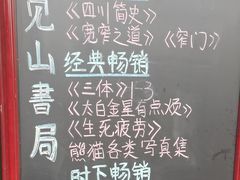 见山書局
《四川简史》
《宽窄之道》《窄门》
经典畅销
《三体》1-3
《太白金星有点烦》
《生死疲劳》
熊猫各类写真集
时下畅销